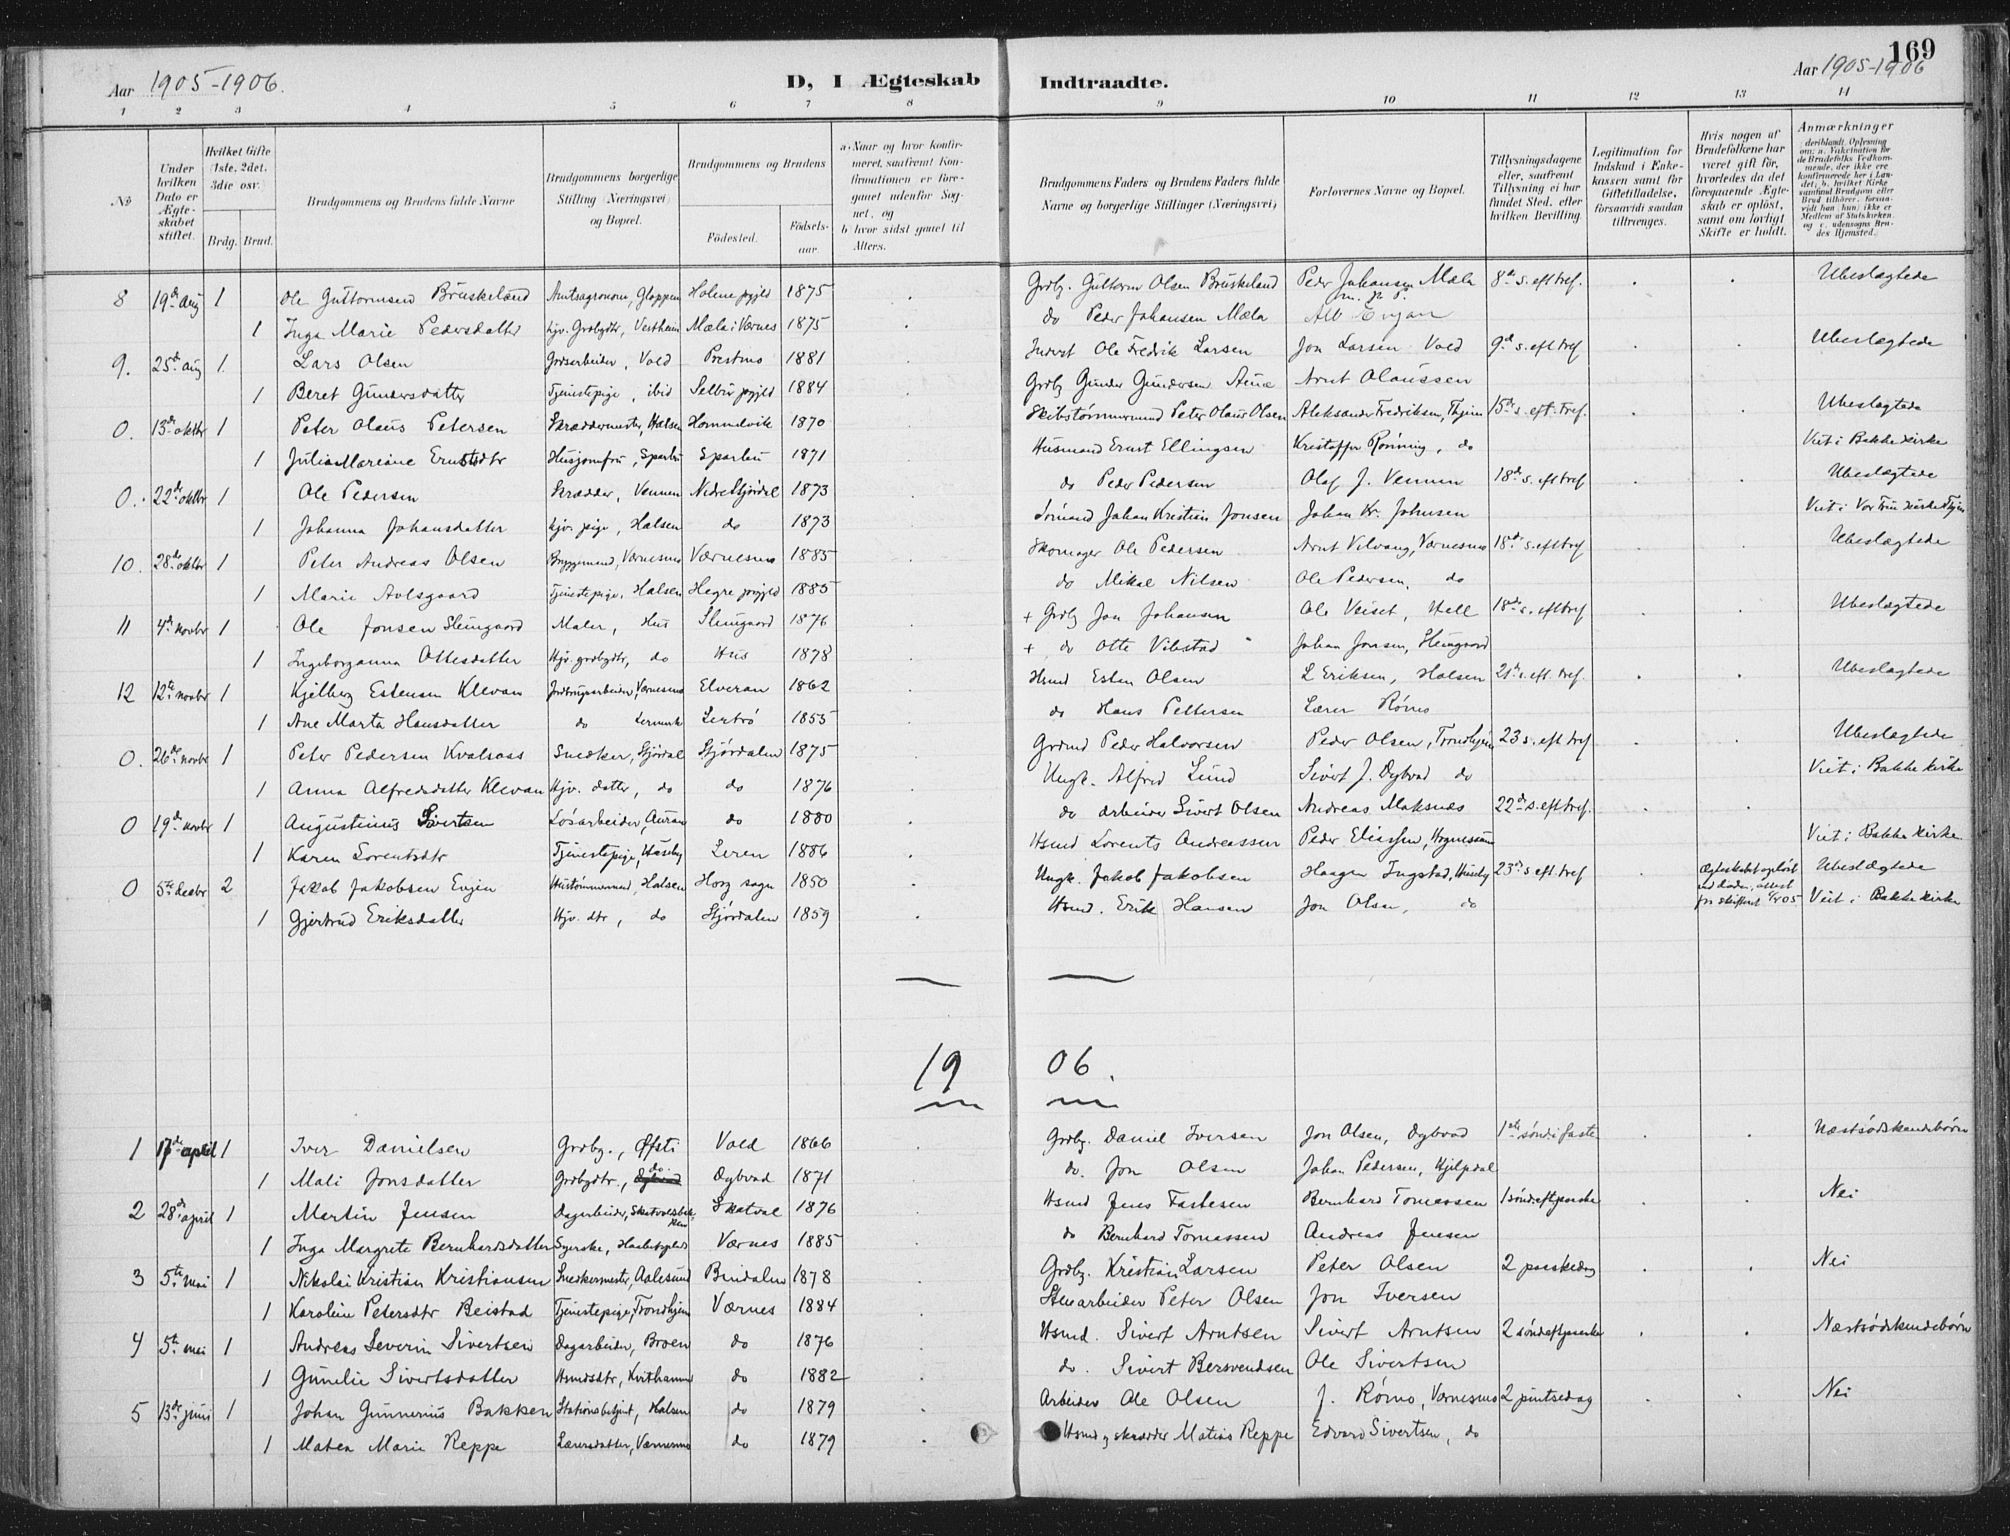 169
Aar 1905-1906.
D, I Ægteskab Indtraadte.
Aar 1905-1906
1 2 3 4 5 6 7 8 9 10 11 12 13 14
No
Under hvilken Dato er Ægteskabet stiftet.
Hvilket Gifte 1ste, 2det, 3die osv.
Brdg. Brud.
Brudgommens og Brudens fulde Navne
Brudgommens borgerlige Stilling (Næringsvei) og Bopæl.
Brudgommens og Brudens
Fødested.
Fødsels-aar
a. Naar og hvor konfirmeret, saafremt Konfirmationen er foregaaet udenfor Sognet, og
b. hvor sidst gaaet til Alters.
Brudgommens Faders og Brudens Faders fulde Navne og borgerlige Stillinger (Næringsvei)
Forlovernes Navne og Bopæl.
Tillysningsdagene eller, saafremt Tillysning ei har fundet Sted, efter hvilken Bevilling.
Legitimation for Indskud i Enkekassen samt for Giftetilladelse, forsaavidt saadan tiltrænges.
Hvis nogen af Brudefolkene har været gift før, hvorledes da det foregaaende Ægteskab er opløst, samt om lovligt Skifte er holdt.
Anmærkninger
8 19de aug 1 Ole Guttormsen Bruskeland Amtsagronom, Gloppen Holme pgjld 1875 Grdbr. Guttorm Olsen Bruskeland Peder Johansen Mæla 8de s. eft tref. Ubeslægtede
1 Inga Marie Pedersdatter hjv. Grdbgdtr, Vestheim Mæla i Værnes 1875 do Peder Johansen Mæla
9. 25de aug 1 Lars Olsen Gdsarbeider, Vold Prestmo 1881 Inderst Ole Fredrik Larsen Jon Larsen Vold 9de s. eft tref Ubeslægtede
1 Beret Gundersdatter Tjenestepige, ibid Selbu pgjld 1884 Grdb Gunder Gundersen Aune Arnt Olaussen
0. 13de oktbr 1 Peter Olaus Petersen Skræddermester, Halsen Hommelvik 1870 Skibstømmermand Peter Olaus Olsen Aleksander Fredriksen, Thjem 15de s. eft. tref. Ubeslægtede
1 Julia Mariane Ernstdtr Husjomfru, Sparbu Sparbu 1871 Husmand Ernst Ellingsen Kristoffer Rønning, do Viet i Bakke kirke
0. 22de oktbr 1 Ole Pedersen Skrædder, Vennen Nedre Stjørdal 1873 do Peder Pedersen Olaf J. Vennen 18de s. eft tref Ubeslægtede
1 Johanna Johansdatter hjv. pige, Halsen do 1873 Johan Kristian Jonsen Johan Kr. Johnsen Viet i Vor Frue kirke Thjem
10. 28de oktbr 1 Peter Andreas Olsen Bryggemand, Værnesmo Værnesmo 1885 Skomager Ole Pedersen Arnt Vilvang, Værnesmo 18de s. eft tref Ubeslægtede
1 Marie Avlsgaard Tjenestepige, Halsen Hegre pgjld 1885 do Mikal Nilsen Ole Pedersen, do
11 4de novbr 1 Ole Jonsen Sleingaard Maler, Hus 1876 + Grdb Jon Johansen Ole Veiset, Hell 18de s. eft tref Ubeslægtede
1 Ingeborganna Ottesdatter Hjv. grdbgdtr, do Hus 1878 + do Otte Vibstad Johan Jonsen,
12 12te novbr 1 Kjelberg Estensen Klevan Jordbrugsarbeider, Værnesmo Elveran 1862 Hsmd Esten Olsen L Eriksen, Halsen 21de s. eft. tref. Ubeslægtede
1 Ane Marta Hansdatter do 1855 do Hans Pettersen Lærer Rømo
0. 26de novbr 1 Peter Pedersen Kvalsaas Snedker, Stjørdal Stjørdalen 1875 Grdmd Peder Halvorsen Peder Olsen, Trondhjem 23 s. eft tref Ubeslægtede
1 Anna Alfredsdatter Klevan Hjv. datter, do do 1876 Ungk. Alfred Lund Sivert J. Dybvad do Viet i Bakke kirke
0 19de novbr 1 Augustinus Sivertsen Løsarbeider, Auran do 1880 do arbeider Sivert Olsen Andreas Moksnes 22de s. eft tref.
1 Karen Lorentsdtr Tjenestepige, Husby Leren 1886 Hsmd Lorents Andreassen Peder Eliassen, Viet i Bakke kirke
0 5te decbr 2 Jakob Jakobsen Evjen Hustømmermand, Halsen Horg sogn 1850 Ungk. Jakob Jakobsen Haagen Ingstad, Husby 23de s eft. tref Ægteskabet opløst ved døden, attest fra skifteret 6/4 05 Ubeslægtede
1 Gjertrud Eriksdatter Hjv. dtr, do Stjørdalen 1859 Hsmd. Erik Hansen Jon Olsen, do Viet i Bakke kirke
1906.
1 17de april 1 Iver Danielsen Grdbg., Øfsti Vold 1866 Grdbg. Daniel Iversen Jon Olsen, Dybvad 1ste sønd i faste Næstsødskendebørn
1 Mali Jonsdatter Grdbgdtr., do Dybvad 1871 do. Jon Olsen Johan Pedersen, Hjelpdal
2 28de april 1 Martin Jensen Dagarbeider, Skatvoldsbakken Skatval 1876 Hsmd Jens Tastesen Bernhard Tomassen 1 sønd eft paaske Nei
1 Inga Margrete Bernhardsdatter Syerske, Værnes 1885 do Bernhard Tomassen Andreas Jensen
3 5te mai 1 Nikolai Kristian Kristiansen Snedkermester, Aalesund Bindalen 1878 Grdbg. Kristian Larsen Peter Olsen 2 paaskedag Nei
1 Karoline Petersdtr Beistad Tjenestepige, Trondhjem Værnes 1884 Stenarbeider Peter Olsen Jon Iversen
4 5te mai 1 Andreas Severin Sivertsen Dagarbeider, Broen do 1876 Hsmd. Sivert Arntsen Sivert Arntsen 2 sønd eft paaske Næstsødskendebørn
1 Gunelie Sivertsdatter Hsmdsdtr, Kvithammer do 1882 do. Sivert Bersvendsen Ole Sivertsen
5 13de juni 1 Johan Gunnerius Bakken Stationsbetjent, Halsen do 1879 Arbeider Ole Olsen J. Rømo, Værnesmo 2 pintsedag Nei
1 Matea Marie Reppe Lærersdatter, Værnesmo do 1879 Hsmd og skrædder Matias Reppe Edvard Sivertsen, do